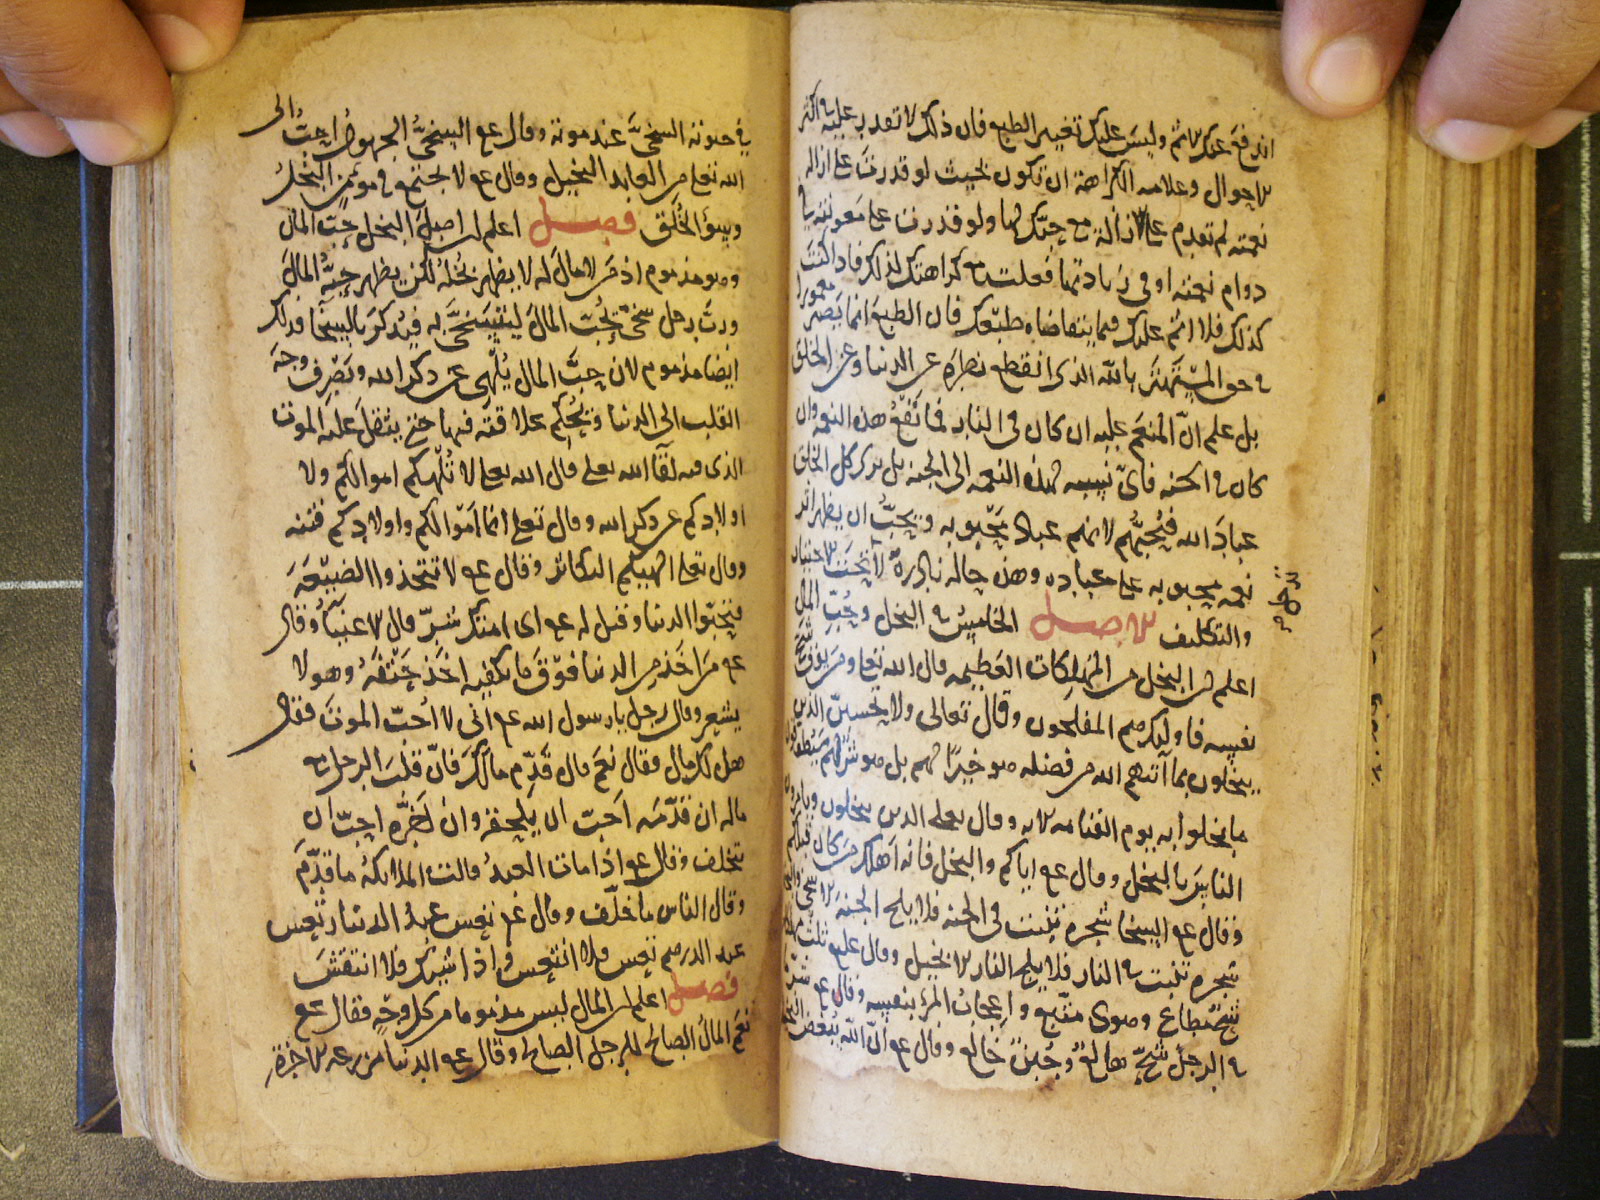 اندفع عنك الاثم وليس عليك تغيير الطبع فان ذلك لا تقدر عليه في اكثر
الاحوال وعلامه الكراهة ان تكون بحيث لو قدرت على ازاله
نعمته لم تقدم على الازالة مع حبّك لها ولو قدرت على معونته في
دوام نعمته او في زيادتها فعلت مع كراهتك لذلك فاذا كنت
كذلك فلا اثم عليك فيما يتقاضاه طبعك فان الطبع انما يصير مقهورا
في حق المستهتر بالله الذى انقطع نظره عن الدنيا وعن الخلق
بل علم انّ المنعم عليه ان كان فى النار فما تنفع هذه النعمه وان
كان في الجنه فاىّ نسبه لهذه النعمه الى الجنه بل يرى كل الخلق
عباد الله فيُحبّهم لانهم عباد محبوبه ويحبّ ان يظهر اثر
نعمه محبوبه على عباده وهذه حاله نادرة لا تدخل تحت الاختيار
والتكليف الاصل الخامس في البخل وحُبّ المال
اعلم ان البخل من المهلكات العظيمه قال الله تعلى ومن يوق شح
نفسه فاوليك هم المفلحون وقال تعالى ولا يحسبنّ الذين
يبخلون بما آتٰهم الله من فضله هو خيرًا لهم بل هو شرّ لهم سيطوقون
ما بخلوا به يوم القيامه الايه وقال تعلى الذين يبخلون ويامرون
الناس بالبخل وقال عم اياكم والبخل فانه اهلك من كان قبلكم
وقال عم السخا شجره تنبت فى الجنه فلا يلج الجنه الا سخى والبخل
شجره تنبت في النار فلا يلج النار الا بخيل وقال عليه ثلث مهلكات
شحّ مطاع وهوى متّبع واعجابُ المرء بنفسه وقال عم شرّ ما
في الرجل شحّ هالع وجُبن خالع وقال عم انّ الله يبغض البخيل
فى حيوته السخىّ عند موته وقال عم السخىُّ الجهول احبّ الى
الله تعلى من العابد البخيل وقال عم لا يجتمع في مومن البخل
وسوء الخُلق فصل اعلم ان اصل البخل حبّ المال
وهو مذموم اذ من لا مال له لا يظهر بُخله لكن يظهر حبّه المال
وربّ رجل سخى يُحبّ المال ليتسخّى به فيُذكر بالسخا فذلك
ايضا مذموم لان حبّ المال يُلهى عن ذكر الله ويصرف وجه
القلب الى الدنيا ويُحكم علاقته فيها حتى يثقل عليه الموت
الذى فيه لقا الله تعلى قال الله تعلى لا تُلهكم اموالكم ولا
اولادكم عن ذكر الله وقال تعلى انما اموالكم واولادكم فتنه
وقال تعلى الهيكم التكاثر وقال عم لا تتخذوا الضيعه
فتحبّوا الدنيا وقيل له عم اى امتك شرّ قال الاغنيآءُ وقال
عم من اخذ من الدنيا فوق ما يكفيه اخذ حتفه وهو لا
يشعر وقال رجل يا رسول الله عم انى لا اُحبّ الموت فقال
هل لك مال فقال نعم قال قدّم مالك فانّ قلب الرجل مع
ماله ان قدّمه احب ان يلحقه وان اخّره احبّ ان
يتخلف وقال عم اذا مات العبدُ قالت الملايكهُ ما قدّم
وقال الناس ما خلّف وقال عم تعس عبدُ الدينار تعس
عبد الدرهم تعس فلا انتعس واذا شيك فلا انتقش
فصل اعلم ان المال ليس مذموما من كل وجه فقال عم
نعم المالُ الصالح للرجل الصالح وقال عم الدنيا مزرعه الاخرة